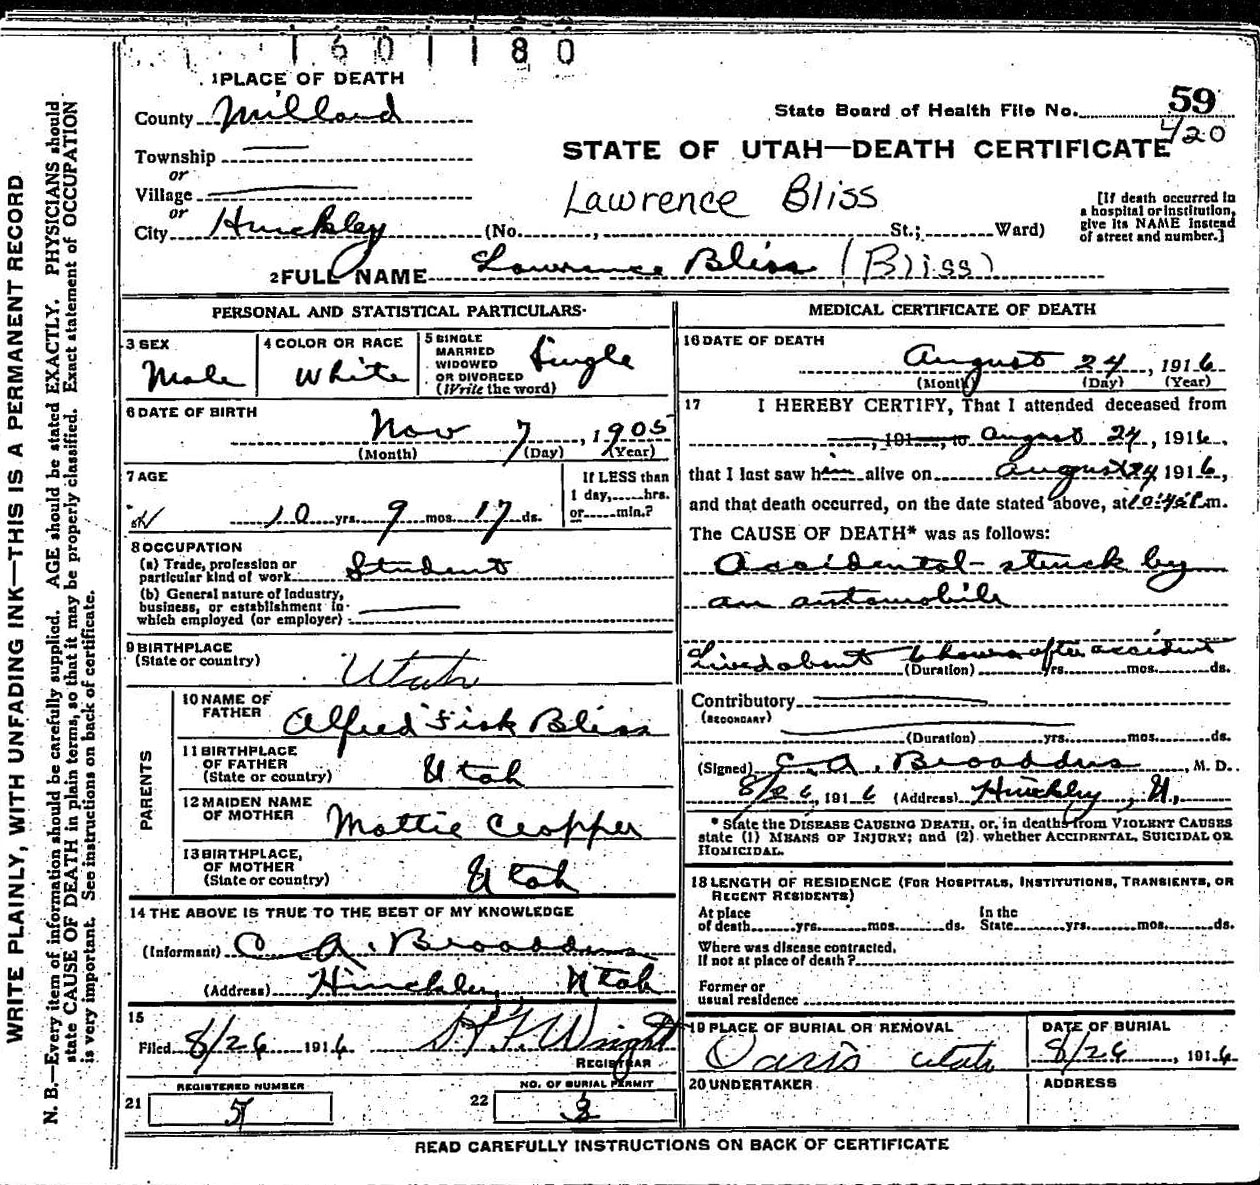 1 6 0 1 1 8 0
1 PLACE OF DEATH
County Millard
Township
or
Village
or
City Hinckley (No. , St.; Ward)
State Board of Health File No. 59
420
STATE OF UTAH—DEATH CERTIFICATE
Lawrence Bliss
[If death occurred in
a hospital or institution,
give its NAME instead
of street and number.]
2 FULL NAME Lawrence Bliss (Bliss)
PERSONAL AND STATISTICAL PARTICULARS
3 SEX
Male
4 COLOR OR RACE
White
5 SINGLE
MARRIED
WIDOWED
OR DIVORCED
(Write the word)
Single
6 DATE OF BIRTH
Nov 7, 1905
(Month) (Day) (Year)
7 AGE
10 yrs. 9 mos. 17 ds.
If LESS than
1 day, hrs.
or min.?
8 OCCUPATION
(a) Trade, profession or
particular kind of work Student
(b) General nature of Industry,
business, or establishment in
which employed (or employer)
9 BIRTHPLACE
(State or country)
Utah
PARENTS
10 NAME OF
FATHER
Alfred Fisk Bliss
11 BIRTHPLACE
OF FATHER
(State or country)
Utah
12 MAIDEN NAME
OF MOTHER
Mattie Cropper
13 BIRTHPLACE,
OF MOTHER
(State or country)
Utah
14 THE ABOVE IS TRUE TO THE BEST OF MY KNOWLEDGE
(Informant) C A. Broaddus
(Address) Hinckley Utah
15
Filed 8/26 1916 Wright
REGISTRAR
REGISTERED NUMBER
21 5
NO. OF BURIAL PERMIT
22 3
MEDICAL CERTIFICATE OF DEATH
16 DATE OF DEATH
August 24, 1916
(Month) (Day) (Year)
17 I HEREBY CERTIFY, That I attended deceased from
, 191 , to August 24, 1916,
that I last saw him alive on August 24 1916,
and that death occurred, on the date stated above, at 10:45 P.m.
The CAUSE OF DEATH* was as follows:
Accidental - struck by
an automobile
Lived about 6 hours after accident
(Duration) yrs. mos. ds.
Contributory
(SECONDARY)
(Duration) yrs. mos. ds.
(Signed) C. A. Broaddus, M. D.
8/26, 1916 (Address) Hinckley, U.,
* State the DISEASE CAUSING DEATH, or, in deaths from VIOLENT CAUSES
state (1) MEANS OF INJURY; and (2) whether ACCIDENTAL, SUICIDAL OR
HOMICIDAL.
18 LENGTH OF RESIDENCE (FOR HOSPITALS, INSTITUTIONS, TRANSIENTS, OR
RECENT RESIDENTS)
At place
of death yrs. mos. ds.
In the
State yrs. mos. ds.
Where was disease contracted,
If not at place of death?
Former or
usual residence
19 PLACE OF BURIAL OR REMOVAL
Oasis Utah
DATE OF BURIAL
8/26, 1916
20 UNDERTAKER
ADDRESS
READ CAREFULLY INSTRUCTIONS ON BACK OF CERTIFICATE
WRITE PLAINLY, WITH UNFADING INK—THIS IS A PERMANENT RECORD
N. B.—Every item of information should be carefully supplied. AGE should be stated EXACTLY. PHYSICIANS should
state CAUSE OF DEATH in plain terms, so that it may be properly classified. Exact statement of OCCUPATION
is very important. See instructions on back of certificate.